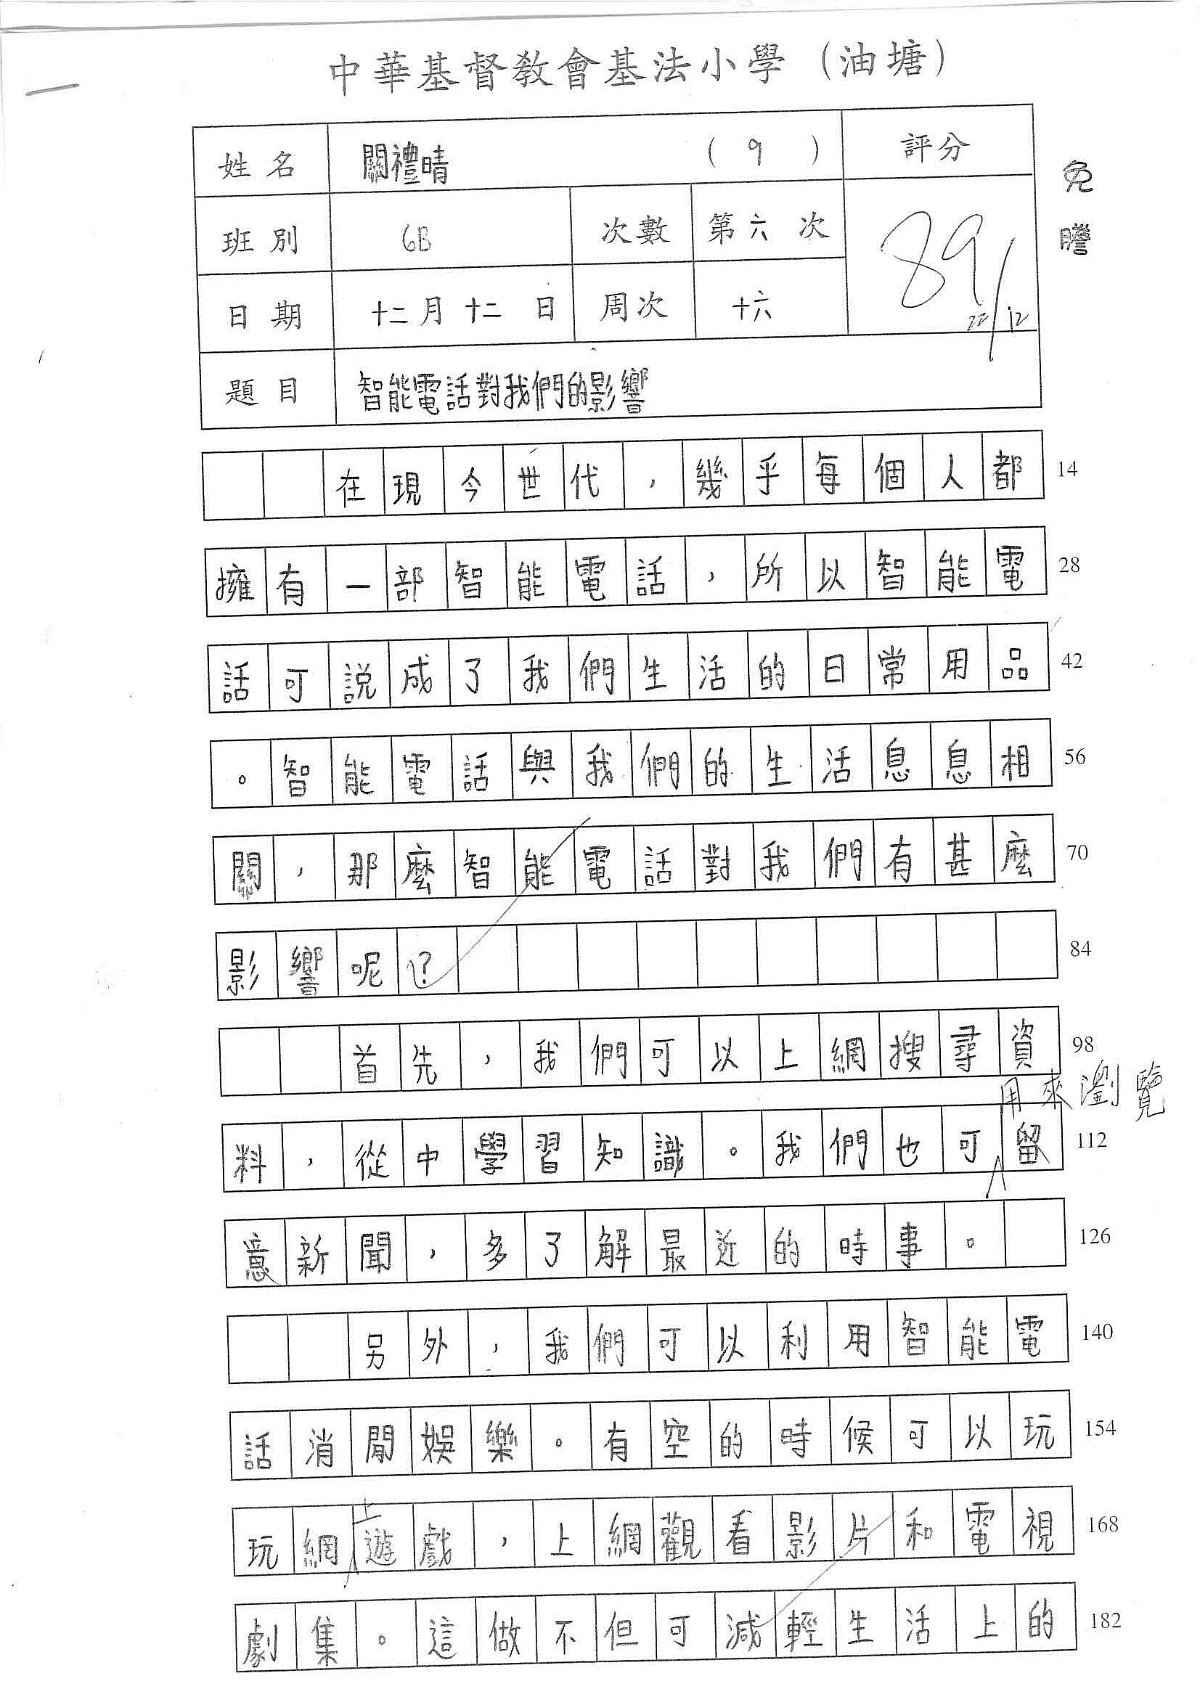 中華基督教會基法小學（油塘）
姓名 關禮晴 （ 9 ） 評分
免謄
班別 6B 次數 第六次
89
22/12
日期 十二月十二日 周次 十六
題目 智能電話對我們的影響
在現今世代，幾乎每個人都 14
擁有一部智能電話，所以智能電 28
話可說成了我們生活的日常用品 42
。智能電話與我們的生活息息相 56
關，那麼智能電話對我們有甚麼 70
影響呢？ 84
首先，我們可以上網搜尋資 98
用來瀏覽
料，從中學習知識。我們也可留 112
意新聞，多了解最近的時事。 126
另外，我們可以利用智能電 140
話消閒娛樂。有空的時候可以玩 154
上
玩網遊戲，上網觀看影片和電視 168
劇集。這做不但可減輕生活上的 182